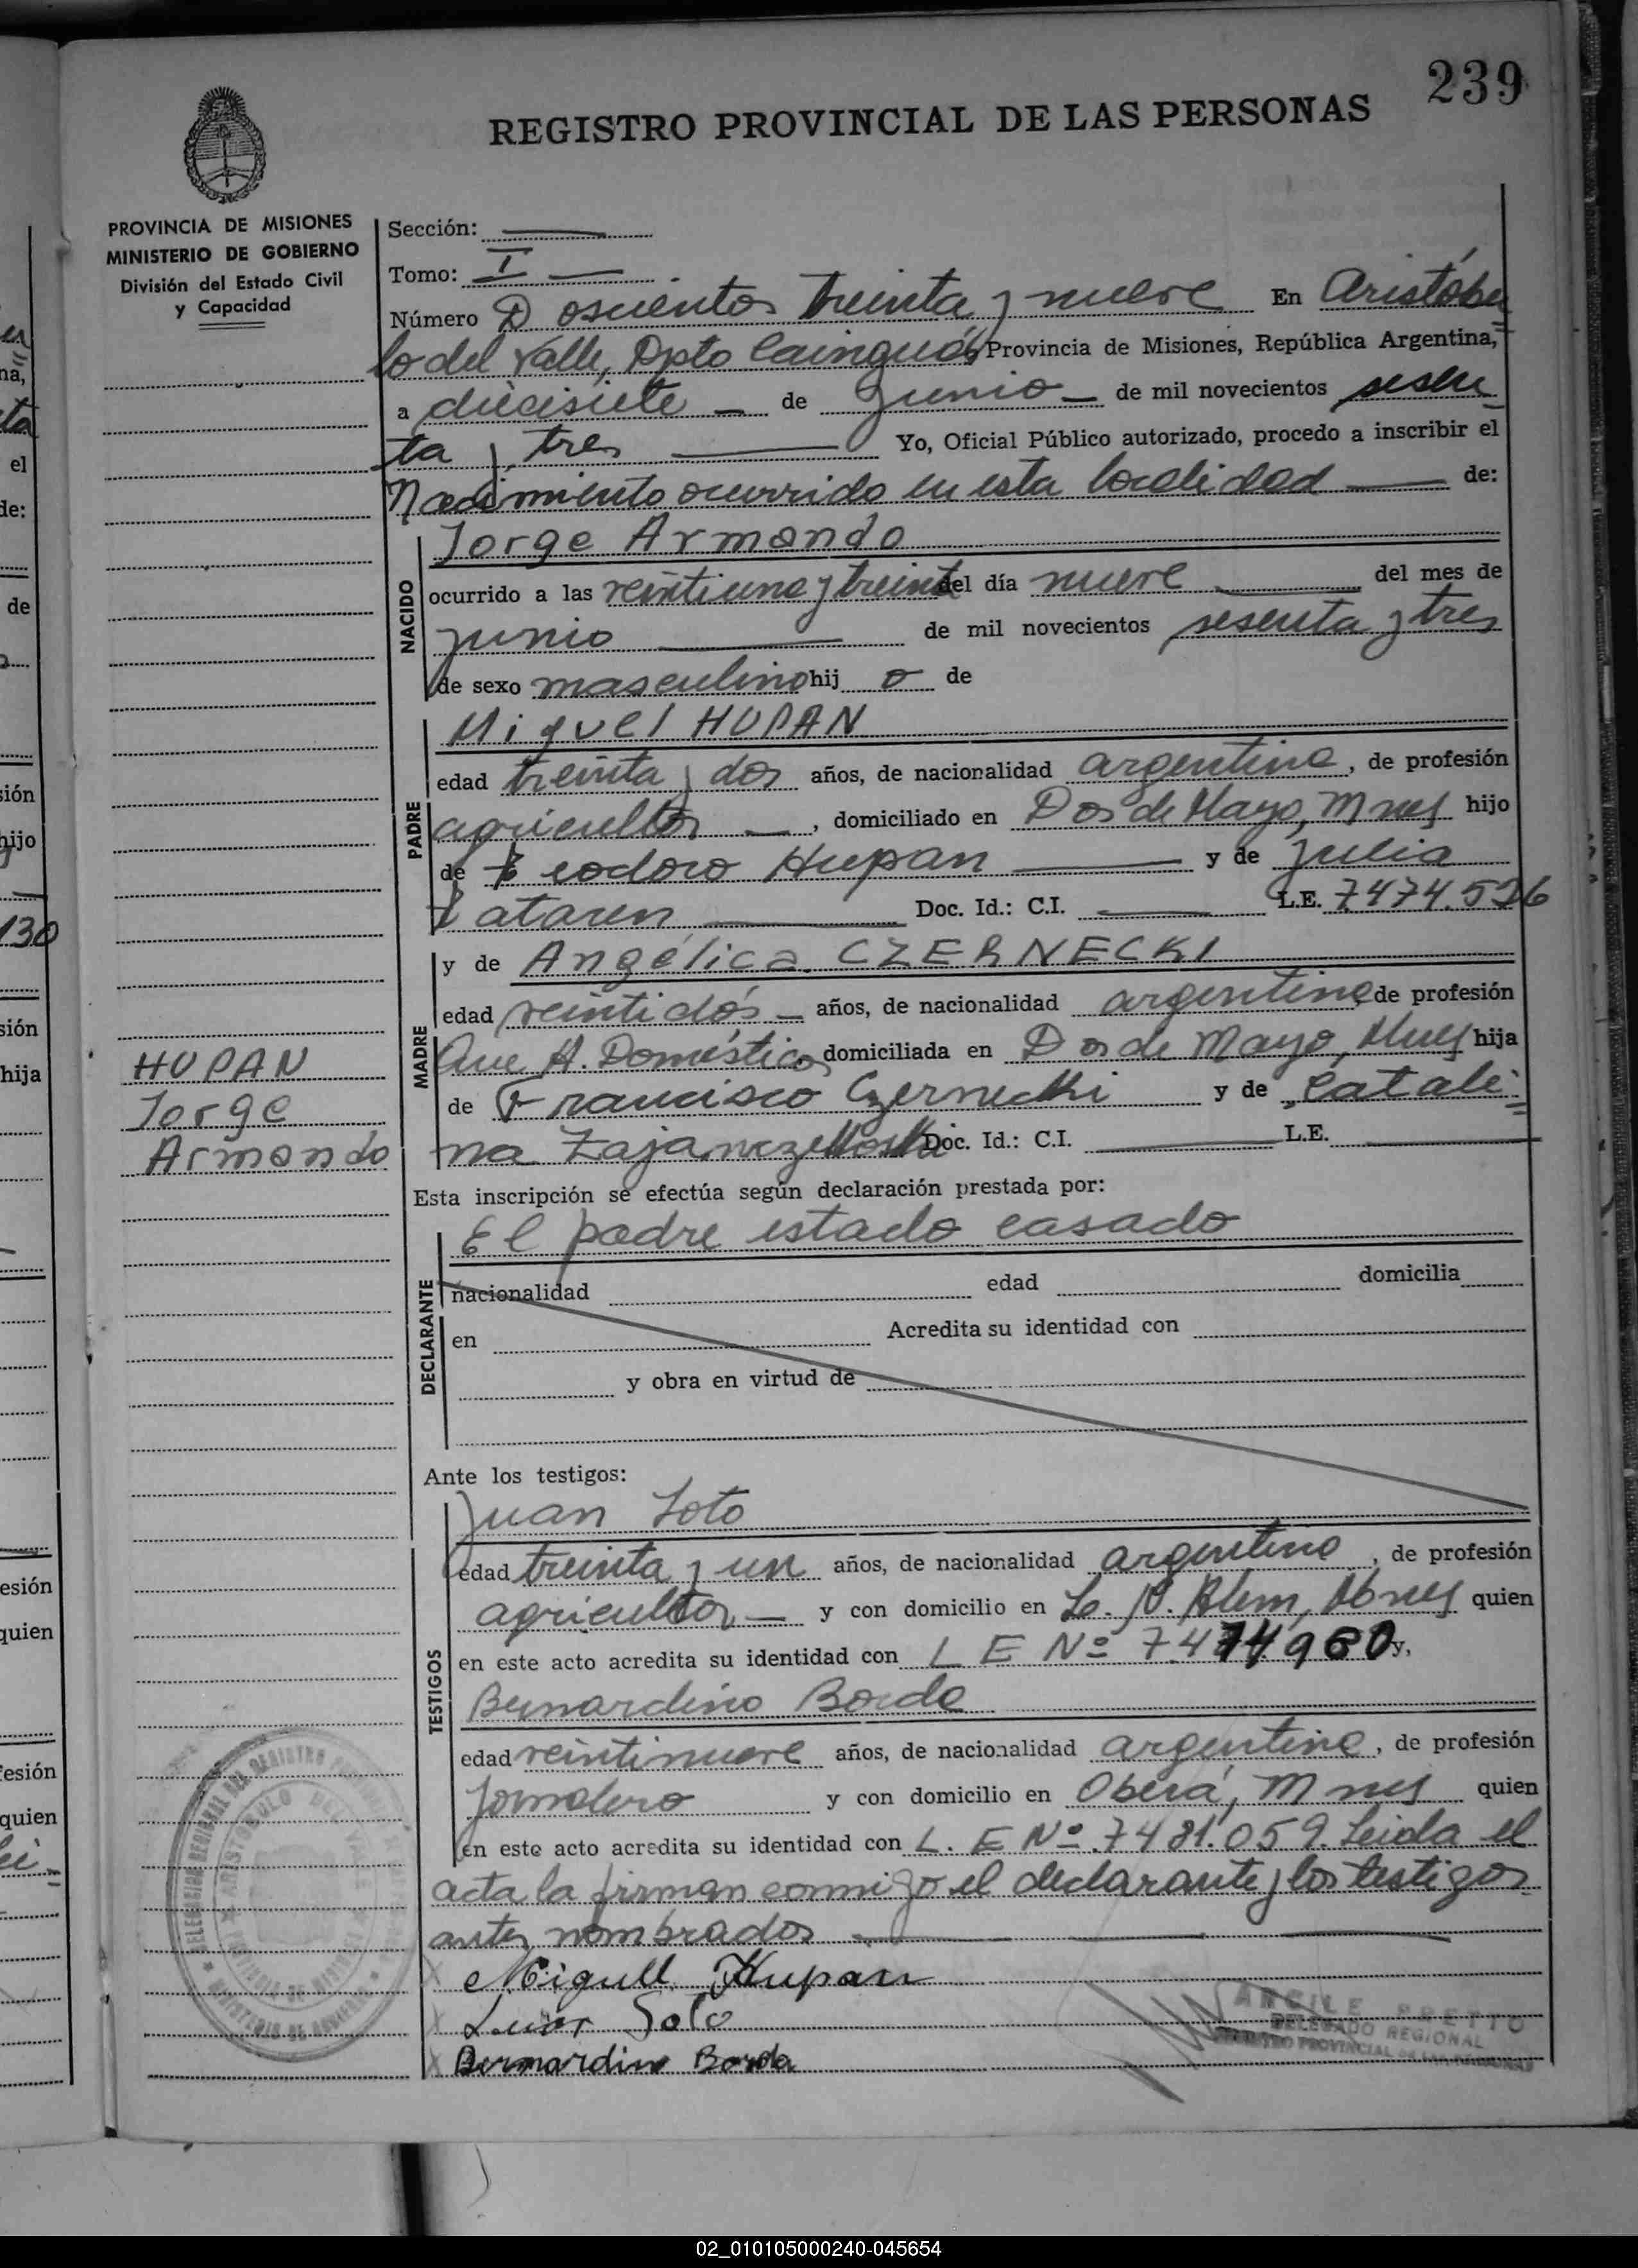 239
REGISTRO PROVINCIAL DE LAS PERSONAS
PROVINCIA DE MISIONES
MINISTERIO DE GOBIERNO
División del Estado Civil
y Capacidad
Sección:
Tomo: I
Número Doscientos treinta y nueve En Aristóbu
lo del Valle, Dpto Cainguás Provincia de Misiones, República Argentina,
a diecisiete de Junio de mil novecientos sesen
ta y tres Yo, Oficial Público autorizado, procedo a inscribir el
Nacimiento ocurrido en esta localidad de:
NACIDO
Jorge Armando
ocurrido a las veintiuna y treinta del día nueve del mes de
junio de mil novecientos sesenta y tres
de sexo masculino hij o de
PADRE
Miguel HUPAN
edad treinta y dos años, de nacionalidad argentina, de profesión
agricultor, domiciliado en Dos de Mayo, Mnes hijo
de Teodoro Hupan y de Julia
Tataren Doc. Id.: C.I. L.E. 7.474.526
MADRE
y de Angélica CZERNECKI
edad veintidós años, de nacionalidad argentina de profesión
Que H. Domésticos domiciliada en Dos de Mayo, Mnes hija
de Francisco Czernecki y de Catali
na Doc. Id.: C.I. L.E.
HUPAN
Jorge
Armando
Esta inscripción se efectúa según declaración prestada por:
DECLARANTE
El padre estado casado
nacionalidad edad domicilia
en Acredita su identidad con
y obra en virtud de
Ante los testigos:
TESTIGOS
Juan Soto
edad treinta y un años, de nacionalidad argentino, de profesión
agricultor y con domicilio en L. N. Alem, Mnes quien
en este acto acredita su identidad con L E Nº 7.474.960 y,
Bernardino Borda
edad veintinueve años, de nacionalidad argentina, de profesión
Jornalero y con domicilio en Oberá, Mnes quien
en este acto acredita su identidad con L. E Nº 7481.059. Leida el
acta la firman conmigo el declarante y los testigos
antes nombrados
Miguel Hupan
Juan Soto
Bernardino Borda
ARCILE PRETTO
DELEGADO REGIONAL
REGISTRO PROVINCIAL DE LAS PERSONAS
02_010105000240-045654